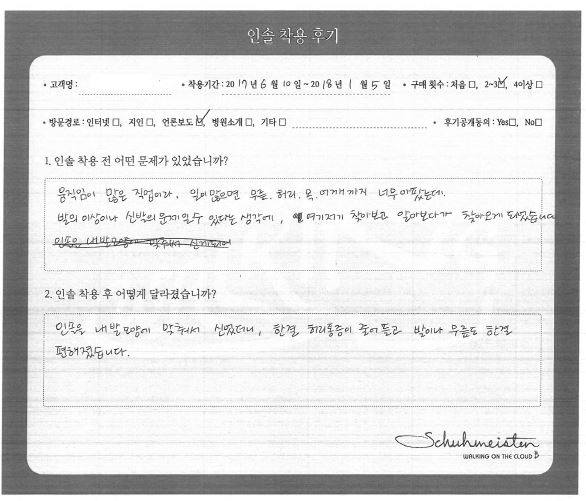 인솔 착용 후기
• 고객명 :
• 착용기간 : 2017년 6월 10일 ~ 2018년 1월 5일
• 구매 횟수 : 처음 □, 2~3☑, 4이상 □
• 방문경로 : 인터넷 □, 지인 □, 언론보도 ☑, 병원소개 □, 기타 □
• 후기공개동의 : Yes□, No□
1. 인솔 착용 전 어떤 문제가 있었습니까?
움직임이 많은 직업이라, 일이 많으면 무릎. 허리. 목. 어깨까지 너무 아팠는데.
발의 이상이나 신발의 문제일수 있다는 생각에, 여기저기 찾아보고 알아보다가 찾아오게 되었습니다
인솔은 내발모양에 맞춰서 신게되어
2. 인솔 착용 후 어떻게 달라졌습니까?
인솔을 내발모양에 맞춰서 신었더니, 한결 허리통증이 줄어들고 발이나 무릎도 한결
편해졌습니다.
Schuhmeister
WALKING ON THE CLOUD B